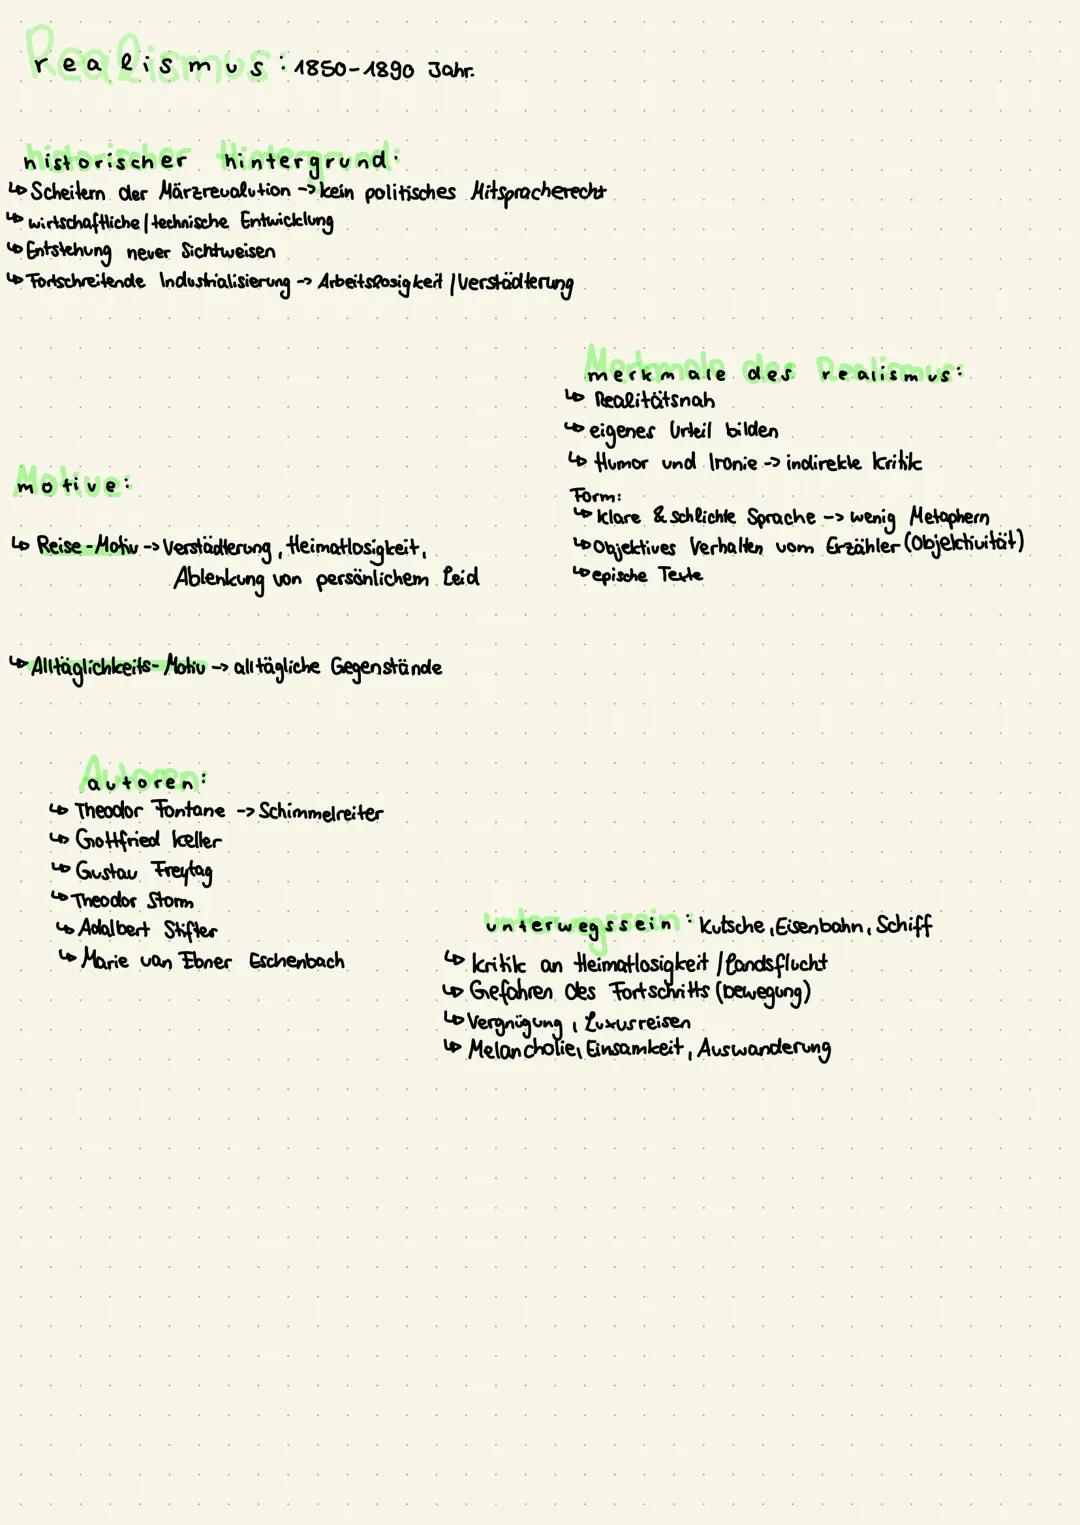 realismus: 1850-1890 Jahr.
historischer hintergrund:
↳ Scheitern der Märzrevolution -> kein politisches Mitspracherecht
↳ wirtschaftliche / technische Entwicklung
↳ Entstehung neuer Sichtweisen
↳ Fortschreitende Industrialisierung -> Arbeitslosigkeit / Verstädterung
merkmale des realismus:
↳ Realitätsnah
↳ eigenes Urteil bilden
↳ Humor und Ironie -> indirekte Kritik
Form:
↳ klare & schlichte Sprache -> wenig Metaphern
↳ Objektives Verhalten vom Erzähler (Objektivität)
↳ epische Texte
motive:
↳ Reise-Motiv -> Verstädterung, Heimatlosigkeit,
Ablenkung von persönlichem Leid
↳ Alltäglichkeits-Motiv -> alltägliche Gegenstände
autoren:
↳ Theodor Fontane -> Schimmelreiter
↳ Gottfried Keller
↳ Gustav Freytag
↳ Theodor Storm
↳ Adalbert Stifter
↳ Marie van Ebner Eschenbach
unterwegssein: Kutsche, Eisenbahn, Schiff
↳ Kritik an Heimatlosigkeit / Landsflucht
↳ Gefahren des Fortschritts (Bewegung)
↳ Vergnügung, Luxusreisen
↳ Melancholie, Einsamkeit, Auswanderung